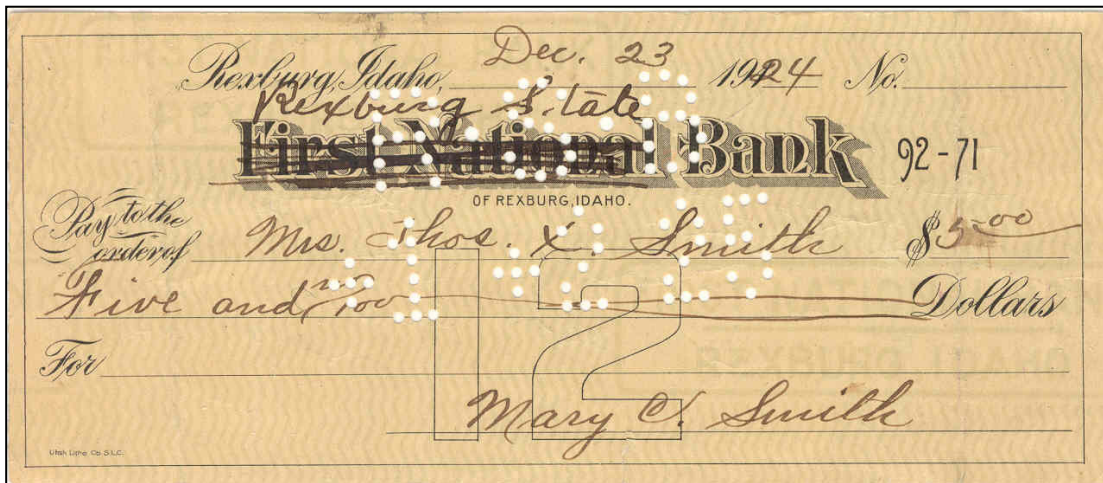 Rexburg, Idaho, Dec. 23 1924 No.
Rexburg State
First National Bank 92-71
OF REXBURG, IDAHO.
Pay to the order of Mrs. Thos. X. Smith $5.00
Five and no/100 Dollars
For
12
Mary C. Smith
Utah Litho. Co. S.L.C.